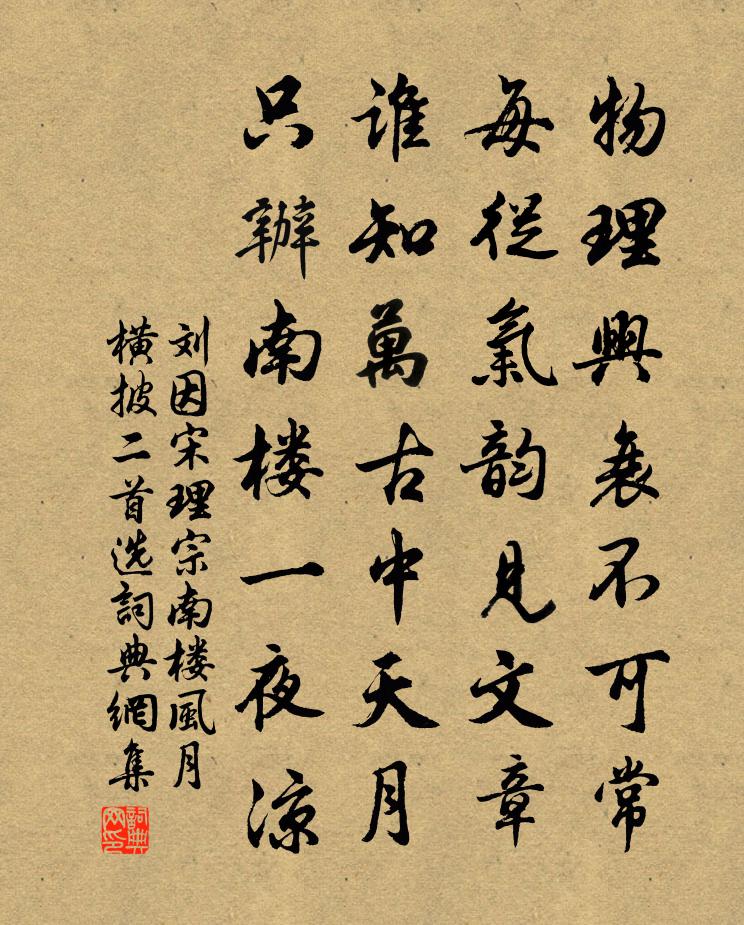 物理興衰不可常
每從氣韵見文章
谁知萬古中天月
只辦南楼一夜凉
刘因宋理宗南楼風月
横披二首选詞典網集
詞典网印